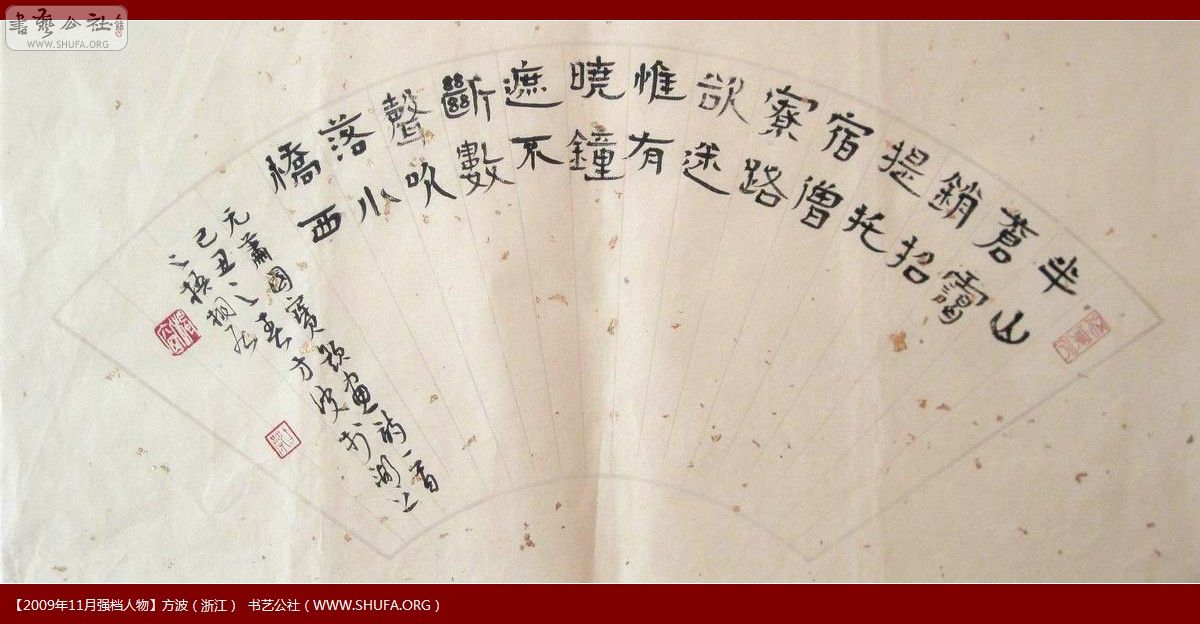 書藝公社
WWW.SHUFA.ORG
半山
蒼靄
銷招
提托
宿僧
寮路
欲迷
惟有
曉鐘
遮不
斷數
聲吹
落小
橋西
元蕭國寶題畫詩一首
己丑之春方波於湖上
之梧桐居
【2009年11月强档人物】方波（浙江） 书艺公社（WWW.SHUFA.ORG）